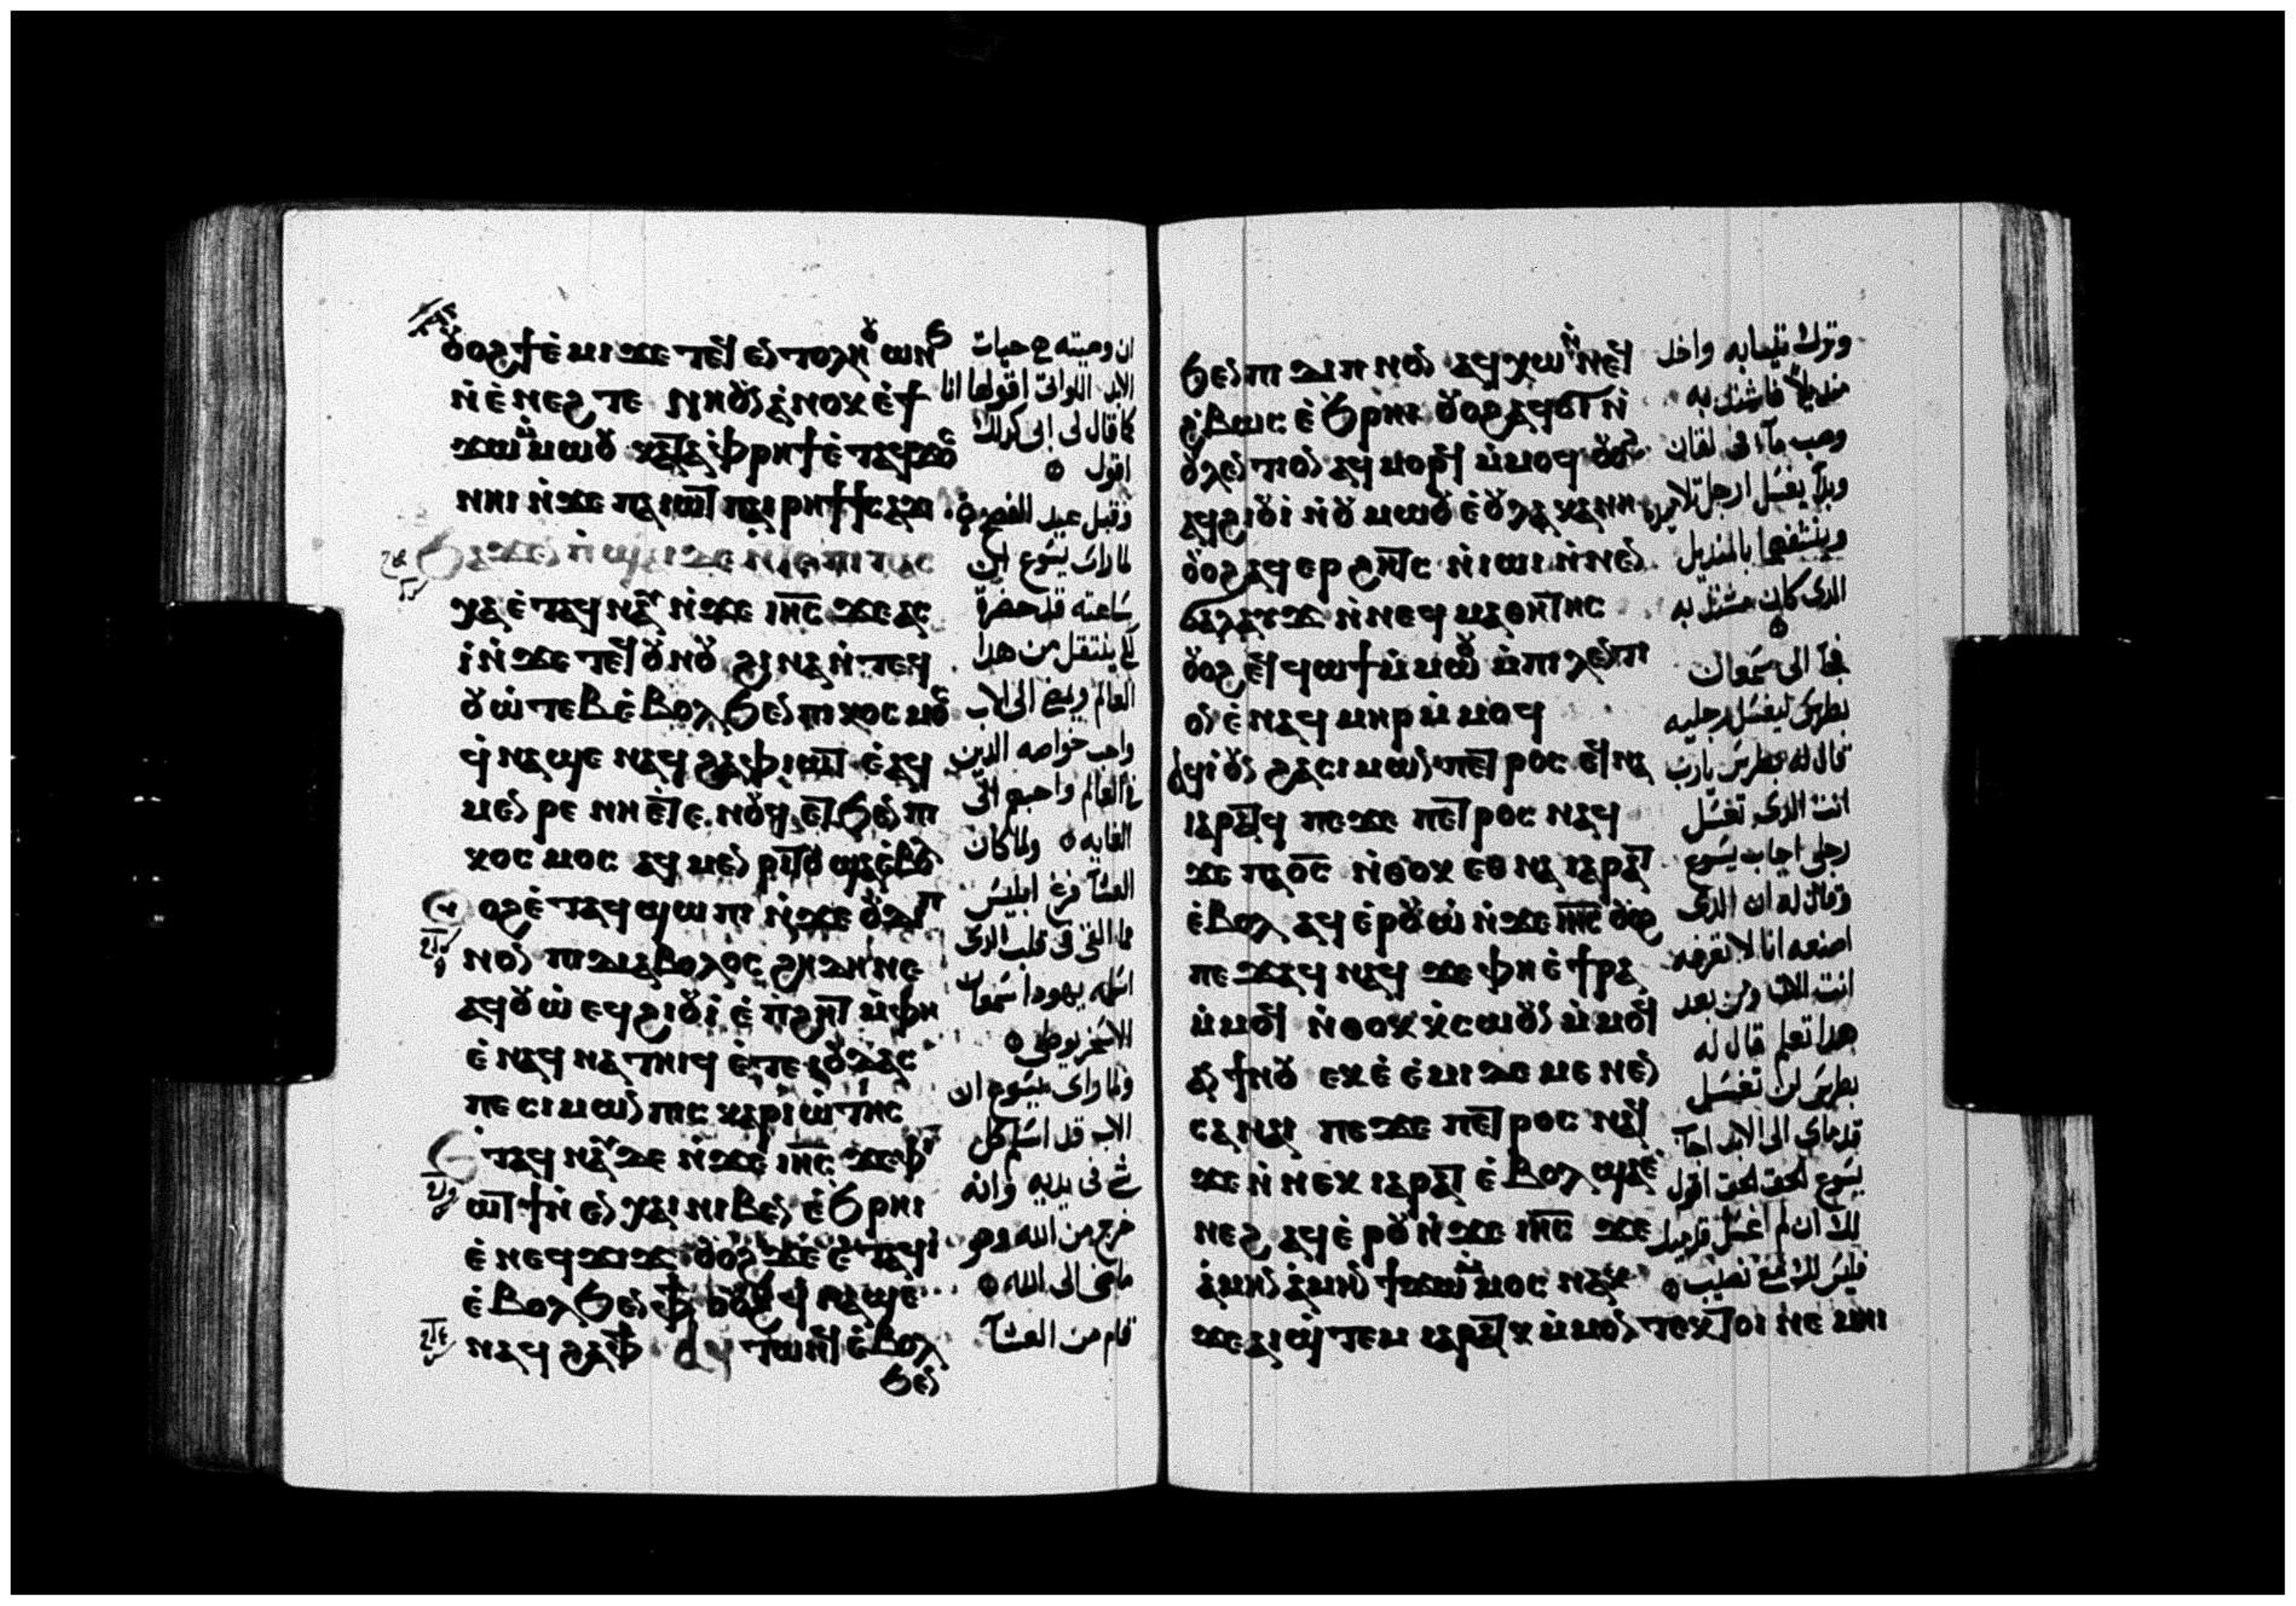 ⲟⲩⲟϩ ϯⲉⲙⲓ ϫⲉ ⲧⲉϥⲉⲛⲧⲟⲗⲏ ⲟⲩⲱⲛϧ
ⲛ̀ⲉ̀ⲛⲉϩ ⲧⲉ ⲛⲏⲟⲩⲛ ⲁ̀ⲛⲟⲕ ⲉ̀ϯ
ϫⲱ ⲙ̀ⲙⲱⲟⲩ ⲕⲁⲧⲁ ⲫ̀ⲣⲏϯ ⲉ̀ⲧⲁϥϫⲟⲥ
ⲛⲏⲓ ⲛ̀ϫⲉ ⲡⲁⲓⲱⲧ ⲡⲁⲓⲣⲏϯ ϯⲥⲁϫⲓ
ϧⲁϫⲉⲛ ⲡ̀ϣⲁⲓ ϫⲉ ⲛ̀ⲧⲉ ⲡⲓⲡⲁⲥ
ⲭⲁ ⲉ̀ⲧⲁϥⲛⲁⲩ ⲛ̀ϫⲉ ⲓⲏ̅ⲥ̅ ϫⲉ ⲁⲥ
ⲓ̀ ⲛ̀ϫⲉ ⲧⲉϥⲟⲩⲛⲟⲩ ϩⲓⲛⲁ ⲛ̀ⲧⲉϥ
ⲟⲩⲱ̀ⲧⲉⲃ ⲉ̀ⲃⲟⲗϧⲉⲛ ⲡⲓⲕⲟⲥⲙⲟⲥ
ϥ̀ⲛⲁϣⲉ ⲛⲁϥ ϩⲁ ⲫ̀ⲓⲱⲧ ⲉ̀ⲁϥ
ⲙⲉⲛⲣⲉ ⲛⲏⲉⲧⲉ ⲛⲟⲩϥ ⲉⲧϧⲉⲛ ⲡⲓ
ⲕⲟⲥⲙⲟⲥ ⲁϥⲙⲉⲛⲣⲓⲧⲟⲩ ϣⲁⲉ̀ⲃⲟⲗ
ⲟⲩⲟϩ ⲉ̀ⲧⲁϥϣⲱⲡⲓ ⲛ̀ϫⲉ ⲟⲩⲇⲓⲡ
ⲛⲟⲛ ⲡⲓⲇⲓⲁⲃⲟⲗⲟⲥ ϩⲏⲇⲏ ⲛⲉ
ⲁϥⲟⲩⲱ̀ ⲉϥϩⲓⲟⲩⲓ̀ ⲉ̀ⲡ̀ϩⲏⲧ ⲙ̀ⲫⲏ
ⲉ̀ⲛⲁϥⲛⲁⲧⲏⲓϥ ⲉ̀ⲧⲉ ⲓⲟⲩⲇⲁⲥ
ⲡⲉ ⲥⲓⲙⲱⲛ ⲡⲓⲥⲕⲁⲣⲓⲱ̀ⲧⲏⲥ
ⲉⲧⲁϥⲛⲁⲩ ⲇⲉ ⲛ̀ϫⲉ ⲓⲏ̅ⲥ̅ ϫⲉ ⲫ̀ⲓ
ⲱⲧ ϯ ⲛ̀ⲉⲛⲭⲁⲓ ⲛⲓⲃⲉⲛ ⲉ̀ϧⲣⲏⲓ
ⲉ̀ⲛⲉϥϫⲓϫ ⲟⲩⲟϩ ϫⲉ ⲉ̀ⲧⲁϥⲓ̀
ⲉ̀ⲃⲟⲗϧⲉⲛ ⲫϯ ⲟⲩⲟϩ ϥ̀ⲛⲁϣⲉ
ⲛⲁϥ ϩⲁ ⲫϯ ⲁϥⲧⲱⲛϥ ⲉ̀ⲃⲟⲗ
ϧⲉⲛ
ان وصيته ه حيات
الابد اللواتى اقولها انا
كما قال لى ابى كدلك
اقول
وقبل عيد الفصح
لما راى يسوع ان
ساعته قد حضرة
لكى ينتقل من هدا
العالم ويمضى الى الاب
واحب خواصه الدين
فى العالم واحبهم الى
الغايه ولما كان
العشآ فرغ ابليس
مما القى فى قلب الدى
اسلمه يهودا سمعان
الاسخريوطى
ولما راى يسوع ان
الاب قد اسلم كل
شى فى يديه وانه
خرج من الله وهو
ماضى الى الله
قام من العشآ
ϧⲉⲛ ⲡⲓⲇⲓⲡⲛⲟⲛ ⲁϥⲭⲱ ⲛ̀ⲛⲉϥ
ϩ̀ⲃⲱⲥ ⲉ̀ϧⲣⲏⲓ ⲟⲩⲟϩ ⲁϥϭⲓ ⲛ̀
ⲟⲩⲗⲉⲛⲧⲓⲟⲛ ⲁϥⲙⲟⲣϥ ⲙ̀ⲙⲟϥ ⲟⲩⲟϩ
ⲁϥϩⲓⲟⲩⲓ̀ ⲛ̀ⲟⲩⲙⲱⲟⲩ ⲉ̀ⲟⲩⲗⲁⲕⲁⲛⲏ
ⲟⲩⲟϩ ⲁϥⲉⲣϩⲏⲧⲥ ⲛ̀ⲓⲱⲓ ⲛ̀ⲛⲉⲛ
ϭⲁⲗⲁⲩϫ ⲛ̀ⲛⲉϥⲙⲁⲑⲏⲧⲏⲥ
ⲟⲩⲟϩ ⲉϥϥⲱϯ ⲙ̀ⲙⲱⲟⲩ ⲙ̀ⲡⲓⲗⲉⲛⲧⲓ
ⲟⲛ ⲉ̀ⲛⲁϥⲙⲏⲣ ⲙ̀ⲙⲟϥ
ⲁϥⲓ̀ ⲟⲩⲛ ϩⲁ ⲥⲓⲙⲱⲛ ⲡⲉⲧⲣⲟⲥ ⲉϥⲛⲁ
ⲓⲁⲣⲁⲧϥ ⲡⲉϫⲉ ⲡⲉⲧⲣⲟⲥ ⲛⲁϥ
ϫⲉ ⲡⲁⲟ̅ⲥ̅ ⲛ̀ⲑⲟⲕ ⲉⲑⲛⲁⲓⲁⲣⲁⲧ
ⲉ̀ⲃⲟⲗ ⲁϥⲉ̀ⲣⲟⲩⲱ̀ ⲛ̀ϫⲉ ⲓⲏ̅ⲥ̅ ⲟⲩⲟϩ
ⲡⲉϫⲁϥ ⲛⲁϥ ϫⲉ ⲫⲏ ⲉ̀ϯⲣⲁ
ⲙ̀ⲙⲟϥ ⲛ̀ⲑⲟⲕ ⲕ̀ⲥⲱⲟⲩⲛ ⲙ̀ⲙⲟϥ
ⲁⲛ ϯⲛⲟⲩ ⲉⲕⲉ̀ⲉ̀ⲙⲓ ⲇⲉ ⲙⲉⲛⲉⲛ
ⲥⲁ ⲛⲁⲓ ⲡⲉϫⲉ ⲡⲉⲧⲣⲟⲥ ⲛⲁϥ
ϫⲉ ⲛ̀ⲛⲉⲕ ⲓⲁⲣⲁⲧ ⲉ̀ⲃⲟⲗ ϣⲁⲉ̀
ⲛⲉϩ ⲁϥⲉ̀ⲣⲟⲩⲱ ⲛ̀ϫⲉ ⲓⲏ̅ⲥ̅ ϫⲉ
ⲁ̀ⲙⲏⲛ ⲁ̀ⲙⲏⲛ ϯϫⲱ ⲙ̀ⲙⲟⲥ ⲛⲁⲕ
ϫⲉ ⲁⲓϣ̀ⲧⲉⲙ ⲓⲁⲣⲁⲧⲕ ⲙ̀ⲙⲟⲛⲧⲉⲕ ⲧⲟⲓ ⲛⲉⲙⲏⲓ
وترك ثيابه واخد
منديلًا فاشتد به
وصب مآء فى لقان
وبدأ يغسل ارجل تلاميده
وينشفها بالمنديل
الدى كان مشتد به
فجآ الى سمعان
بطرس ليغسل رجليه
قال له بطرس يارب
انت الدى تغسل
رجلى اجاب يسوع
وقال له ان الدى
اصنعه انا لا تعرفه
انت الان ومن بعد
هدا تعلم قال له
بطرس لن تغسل
قدماى الى الابد اجآب
يسوع الحق الحق اقول
لك ان لم اغسل قدميك
فليس لك معى نصيب